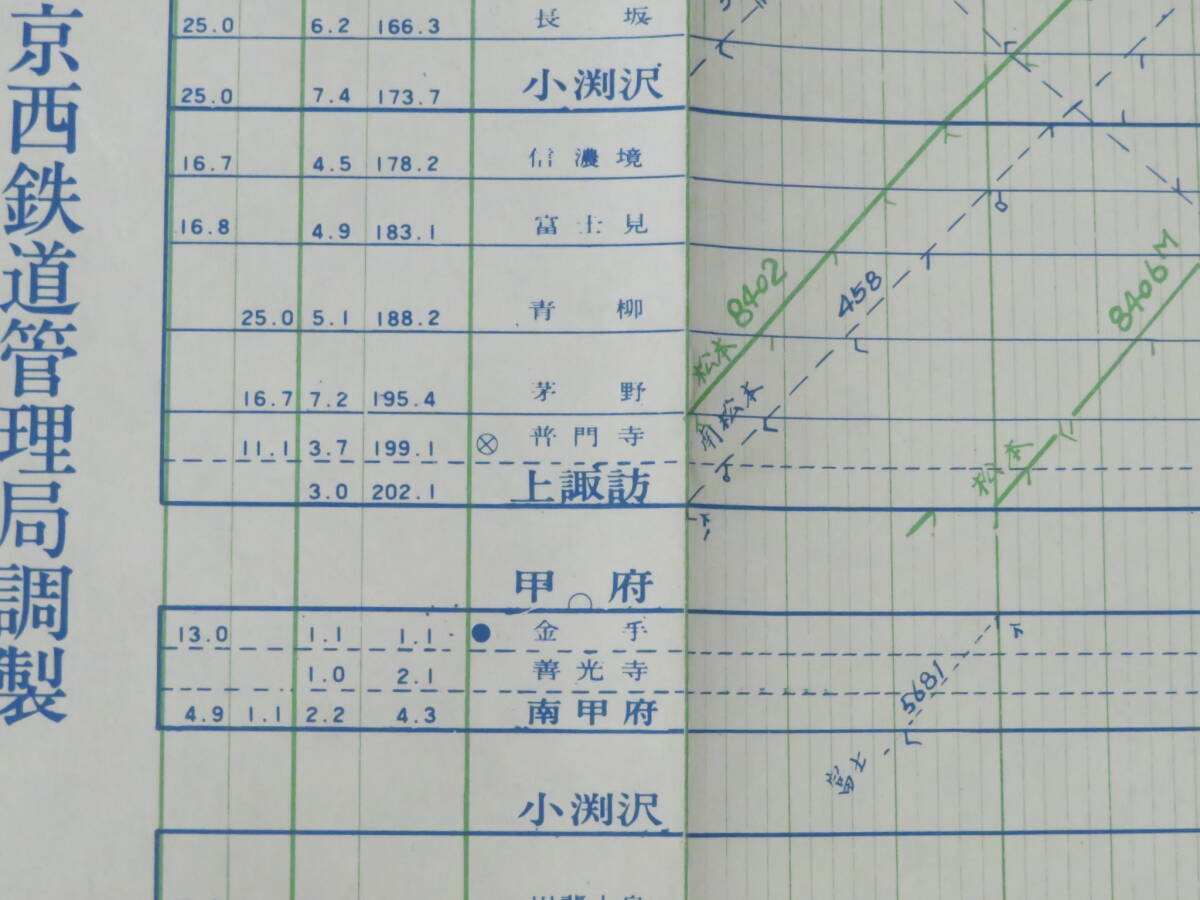 京西鉄道管理局調製
25.0 6.2 166.3 長坂
25.0 7.4 173.7 小渕沢
16.7 4.5 178.2 信濃境
16.8 4.9 183.1 富士見
25.0 5.1 188.2 青柳
16.7 7.2 195.4 茅野
11.1 3.7 199.1 普門寺
3.0 202.1 上諏訪
甲府
13.0 1.1 1.1 金手
1.0 2.1 善光寺
4.9 1.1 2.2 4.3 南甲府
小渕沢
松本 8402
南松本 458
松本 8406M
富士 5681